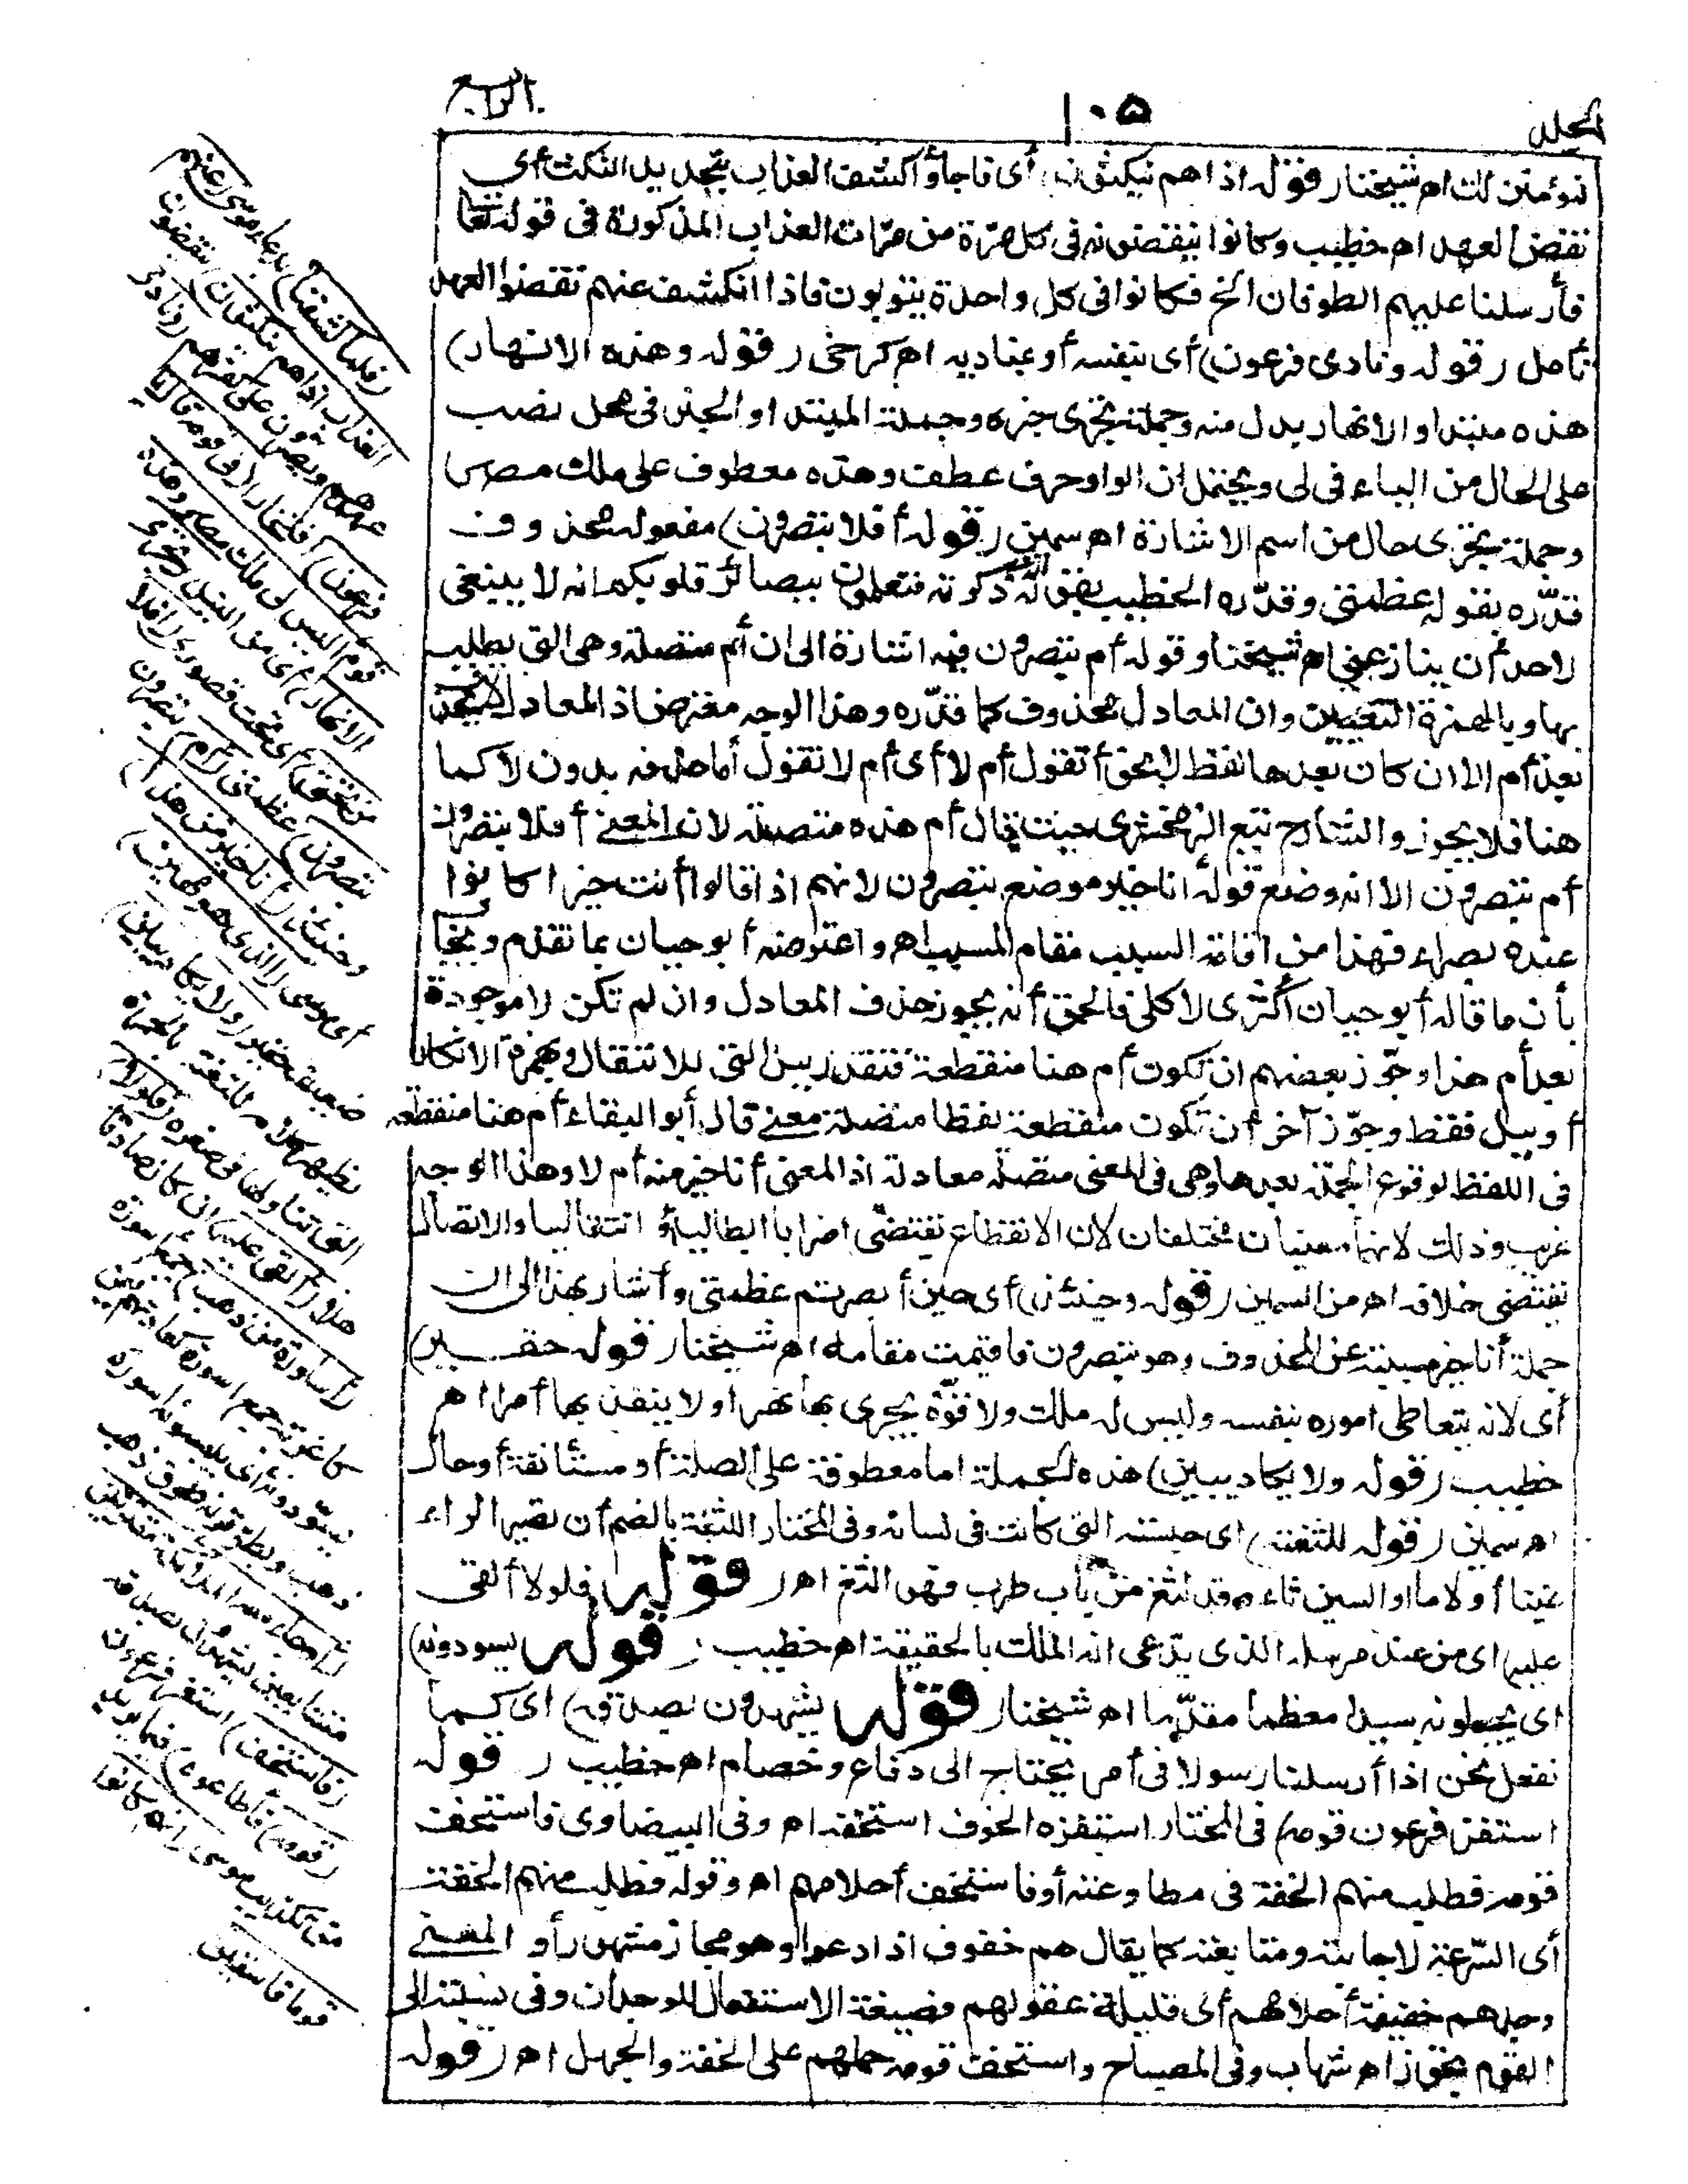 المجلد
١٠٥
الرابع
نؤمن لك اه شيخنا (قوله اذا هم ينكثون) أى فاجأوا كشف العذاب بتجديد النكث أى
نقض العهد اه خطيب وكانوا ينقضونه فى كل مرّة من مرّات العذاب المذكورة فى قوله تعالى
فأرسلنا عليهم الطوفان الخ فكانوا فى كل واحدة يتوبون فاذا انكشف عنهم نقضوا العهد
تأمل (قوله ونادى فرعون) أى بنفسه أو بمناديه اه كرخى (قوله وهذه الانهار)
هذه مبتدا والانهار بدل منه وجملة تجرى خبره وجملة المبتدا والخبر فى محل نصب
على الحال من الياء فى لى ويحتمل ان الواو حرف عطف وهذه معطوف على ملك مصر
وجملة تجرى حال من اسم الاشارة اه سمين (قوله أفلا تبصرون) مفعوله محذوف
قدّره بقوله عظمتى وقدّره الخطيب بقوله ذكرته فتعلمون ببصائر قلوبكم انه لا ينبغى
لاحد أن ينازعنى اه شيخنا وقوله أم تبصرون فيه اشارة الى ان أم متصلة وهى التى يطلب
بها وبالهمزة التعيين وان المعادل محذوف كما قدّره وهذا الوجه معترض اذ المعادل لا يحذف
بعد أم الا ان كان بعدها لفظ لا نحو أتقول أم لا أى أم لا تقول أما حذفه بدون لا كما
هنا فلا يجوز والشارح تبع الزمخشرى حيث قال أم هذه متصلة لان المعنى أفلا تبصرون
أم تبصرون الا انه وضع قوله أنا خير موضع تبصرون لانهم اذا قالوا أنت خير كانوا
عنده بصراء فهذا من اقامة السبب مقام المسبب اه واعترضه أبو حيان بما تقدم ويجاب
بأن ما قاله أبو حيان أكثرى لا كلى فالحق أنه يجوز حذف المعادل وان لم تكن لا موجودة
بعد أم هذا وجوّز بعضهم ان تكون أم هنا منقطعة فتقدر ببل التى للانتقال وبهمزة الانكار
أو ببل فقط وجوّز آخر أن تكون منقطعة لفظا متصلة معنى قال أبو البقاء أم هنا منقطعة
فى اللفظ لوقوع الجملة بعدها وهى فى المعنى متصلة معادلة اذ المعنى أنا خير منه أم لا وهذا الوجه
غريب وذلك لانهما معنيان مختلفان لان الانقطاع يقتضى اضرابا ابطاليا أو انتقاليا والاتصال
يقتضى خلافه اه من السمين (قوله وحينئذ) أى حين أبصرتم عظمتى وأشار بهذا الى ان
جملة أنا خير مسببة عن المحذوف وهو تبصرون فاقيمت مقامه اه شيخنا (قوله حقير)
أى لانه يتعاطى اموره بنفسه وليس له ملك ولا قوّة يجرى بها نهرا ولا ينفذ بها أمرا اه
خطيب (قوله ولا يكاد يبين) هذه الجملة اما معطوفة على الصلة أو مستأنفة أو حال
اه سمين (قوله للثغته) اى حبسته التى كانت فى لسانه وفى المختار اللثغة بالضم أن تصير الراء
غينا أو لاما والسين ثاء وقد لثغ من باب طرب فهو الثغ اه (قوله فلولا ألقى
عليه) اى من عند مرسله الذى يدّعى انه الملك بالحقيقة اه خطيب (قوله يسودونه)
اى يجعلونه سيدا معظما مقدّما اه شيخنا (قوله يشهدون بصدقه) اى كما
نفعل نحن اذا أرسلنا رسولا فى أمر يحتاج الى دفاع وخصام اه خطيب (قوله
استفز فرعون قومه) فى المختار استفزه الخوف استخفه اه وفى البيضاوى فاستخف
قومه فطلب منهم الخفة فى مطاوعته أو فاستخف أحلامهم اه وقوله فطلب منهم الخفة
أى السرعة لاجابته ومتابعته كما يقال هم خفوف اذا دعوا وهو مجاز مشهور أو المعنى
وجدهم خفيفة أحلامهم أى قليلة عقولهم فصيغة الاستفعال للوجدان وفى نسبته الى
القوم تجوّز اه شهاب وفى المصباح واستخف قومه حملهم على الخفة والجهل اه (قوله
(فلما كشفنا) بدعاء موسى (عنهم
العذاب اذا هم ينكثون) ينقضون
عهدهم ويصرون على كفرهم (ونادى
فرعون) افتخارا (فى قومه قال يا
قوم أليس لى ملك مصر وهذه
الانهار) أى من النيل (تجرى
من تحتى) أى تحت قصورى (أفلا
تبصرون) عظمتى (أم) تبصرون
وحينئذ (أنا خير من هذا)
أى موسى (الذى هو مهين)
ضعيف حقير (ولا يكاد يبين)
يظهر كلامه للثغته بالجمرة
التى تناولها فى صغره (فلولا)
هلا (ألقى عليه) ان كان صادقا
(أساورة من ذهب) جمع أسورة
كأغربة جمع اسورة كعادتهم فيمن
يسوّدونه أى يلبسونه أسورة
ذهب ويطوّقونه طوق ذهب
(أو جاء معه الملائكة مقترنين)
متتابعين يشهدون بصدقه
(فاستخف) استفز فرعون
(قومه فأطاعوه) فيما يريد
من تكذيب موسى (انهم كانوا
قوما فاسقين